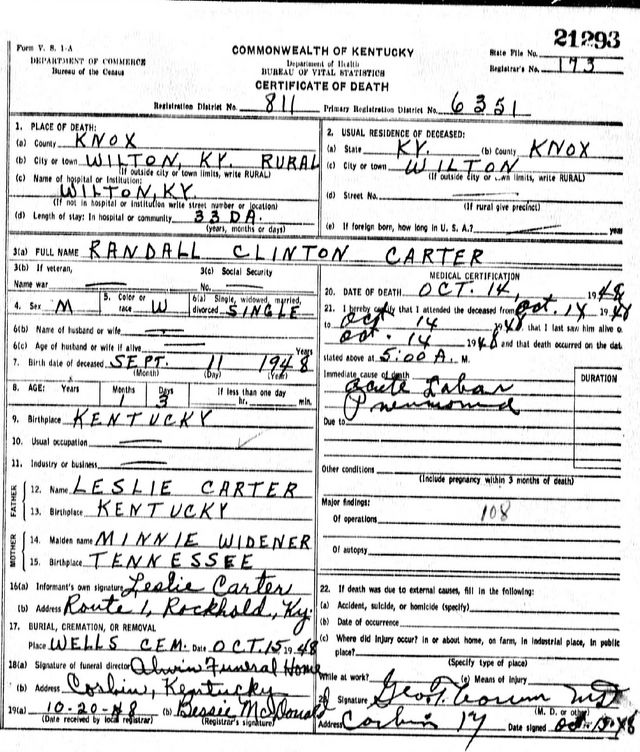 21293
Form V. S. 1-A
DEPARTMENT OF COMMERCE
Bureau of the Census
COMMONWEALTH OF KENTUCKY
Department of Health
BUREAU OF VITAL STATISTICS
CERTIFICATE OF DEATH
State File No.
Registrar's No. 173
Registration District No. 811 Primary Registration District No. 6351
1. PLACE OF DEATH:
(a) County KNOX
(b) City or town WILTON, KY. RURAL
(If outside city or town limits, write RURAL)
(c) Name of hospital or institution:
WILTON, KY
(If not in hospital or institution write street number or location)
(d) Length of stay: In hospital or community 33 DA.
(years, months or days)
2. USUAL RESIDENCE OF DECEASED:
(a) State KY. (b) County KNOX
(c) City or town WILTON
(If outside city or town limits, write RURAL)
(d) Street No.
(If rural give precinct)
(e) If foreign born, how long in U. S. A.? year
3(a) FULL NAME RANDALL CLINTON CARTER
3(b) If veteran,
Name war
3(c) Social Security
No.
4. Sex M
5. Color or race W
6(a) Single, widowed, married, divorced SINGLE
6(b) Name of husband or wife
6(c) Age of husband or wife if alive Years
7. Birth date of deceased SEPT. 11 1948
(Month) (Day) (Year)
8. AGE: Years Months Days If less than one day
1 3 hr. min.
9. Birthplace KENTUCKY
10. Usual occupation
11. Industry or business
FATHER
12. Name LESLIE CARTER
13. Birthplace KENTUCKY
MOTHER
14. Maiden name MINNIE WIDENER
15. Birthplace TENNESSEE
16(a) Informant's own signature Leslie Carter
(b) Address Route 1, Rockhold, Ky.
17. BURIAL, CREMATION, OR REMOVAL
Place WELLS CEM. Date OCT. 15 1948
18(a) Signature of funeral director Funeral Home
(b) Address Corbin, Kentucky
19(a) 10-20-48 (b) Bessie McDonald
(Date received by local registrar) (Registrar's signature)
MEDICAL CERTIFICATION
20. DATE OF DEATH OCT. 14, 1948
21. I hereby certify that I attended the deceased from Oct. 14 1948
to Oct 14 1948 that I last saw him alive o
Oct. 14 1948 and that death occurred on the dat
stated above at 5:00 A. M.
Immediate cause of death
Acute Lobar
Pneumonia
DURATION
Due to
Other conditions
(Include pregnancy within 3 months of death)
Major findings:
Of operations 108
Of autopsy
22. If death was due to external causes, fill in the following:
(a) Accident, suicide, or homicide (specify)
(b) Date of occurrence
(c) Where did injury occur? in or about home, on farm, in industrial place, in public
place?
(Specify type of place)
While at work? (e) Means of injury
Signature Geo. T. MD
(M. D. or other)
Address Corbin Ky Date signed Oct 1948